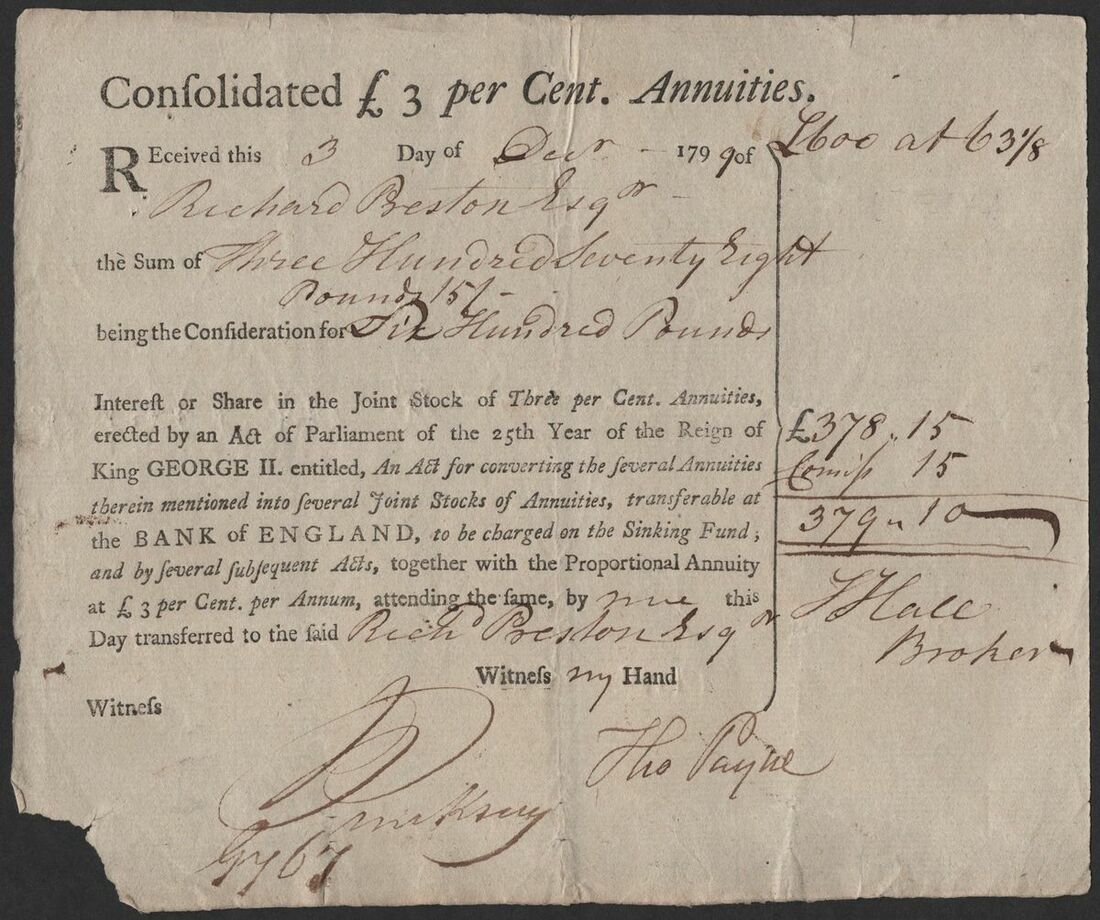 Conſolidated £ 3 per Cent. Annuities.
REceived this 3 Day of Decr 1799 of
£600 at 63 1/8
Richard Preston Esqr
the Sum of Three Hundred Seventy Eight
Pounds 15/-
being the Conſideration for Six Hundred Pounds
Intereſt or Share in the Joint Stock of Three per Cent. Annuities,
erected by an Act of Parliament of the 25th Year of the Reign of
King GEORGE II. entitled, An Act for converting the ſeveral Annuities
therein mentioned into ſeveral Joint Stocks of Annuities, transferable at
the BANK of ENGLAND, to be charged on the Sinking Fund;
and by ſeveral ſubſequent Acts, together with the Proportional Annuity
at £ 3 per Cent. per Annum, attending the ſame, by me this
Day transferred to the ſaid Richd Preston Esqr
£378 " 15
Comiſs 15
379 " 10
Hall
Broker
Witneſs my Hand
Witneſs
Tho Payne